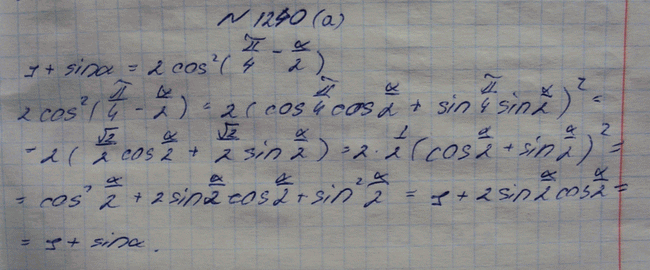 N 1240 (а)
1 + sinα = 2 cos²(π/4 - α/2)
2 cos²(π/4 - α/2) = 2(cos π/4 cos α/2 + sin π/4 sin α/2)² =
= 2(√2/2 cos α/2 + √2/2 sin α/2) = 2·1/2(cos α/2 + sin α/2)² =
= cos² α/2 + 2sin α/2 cos α/2 + sin² α/2 = 1 + 2sin α/2 cos α/2 =
= 1 + sinα.